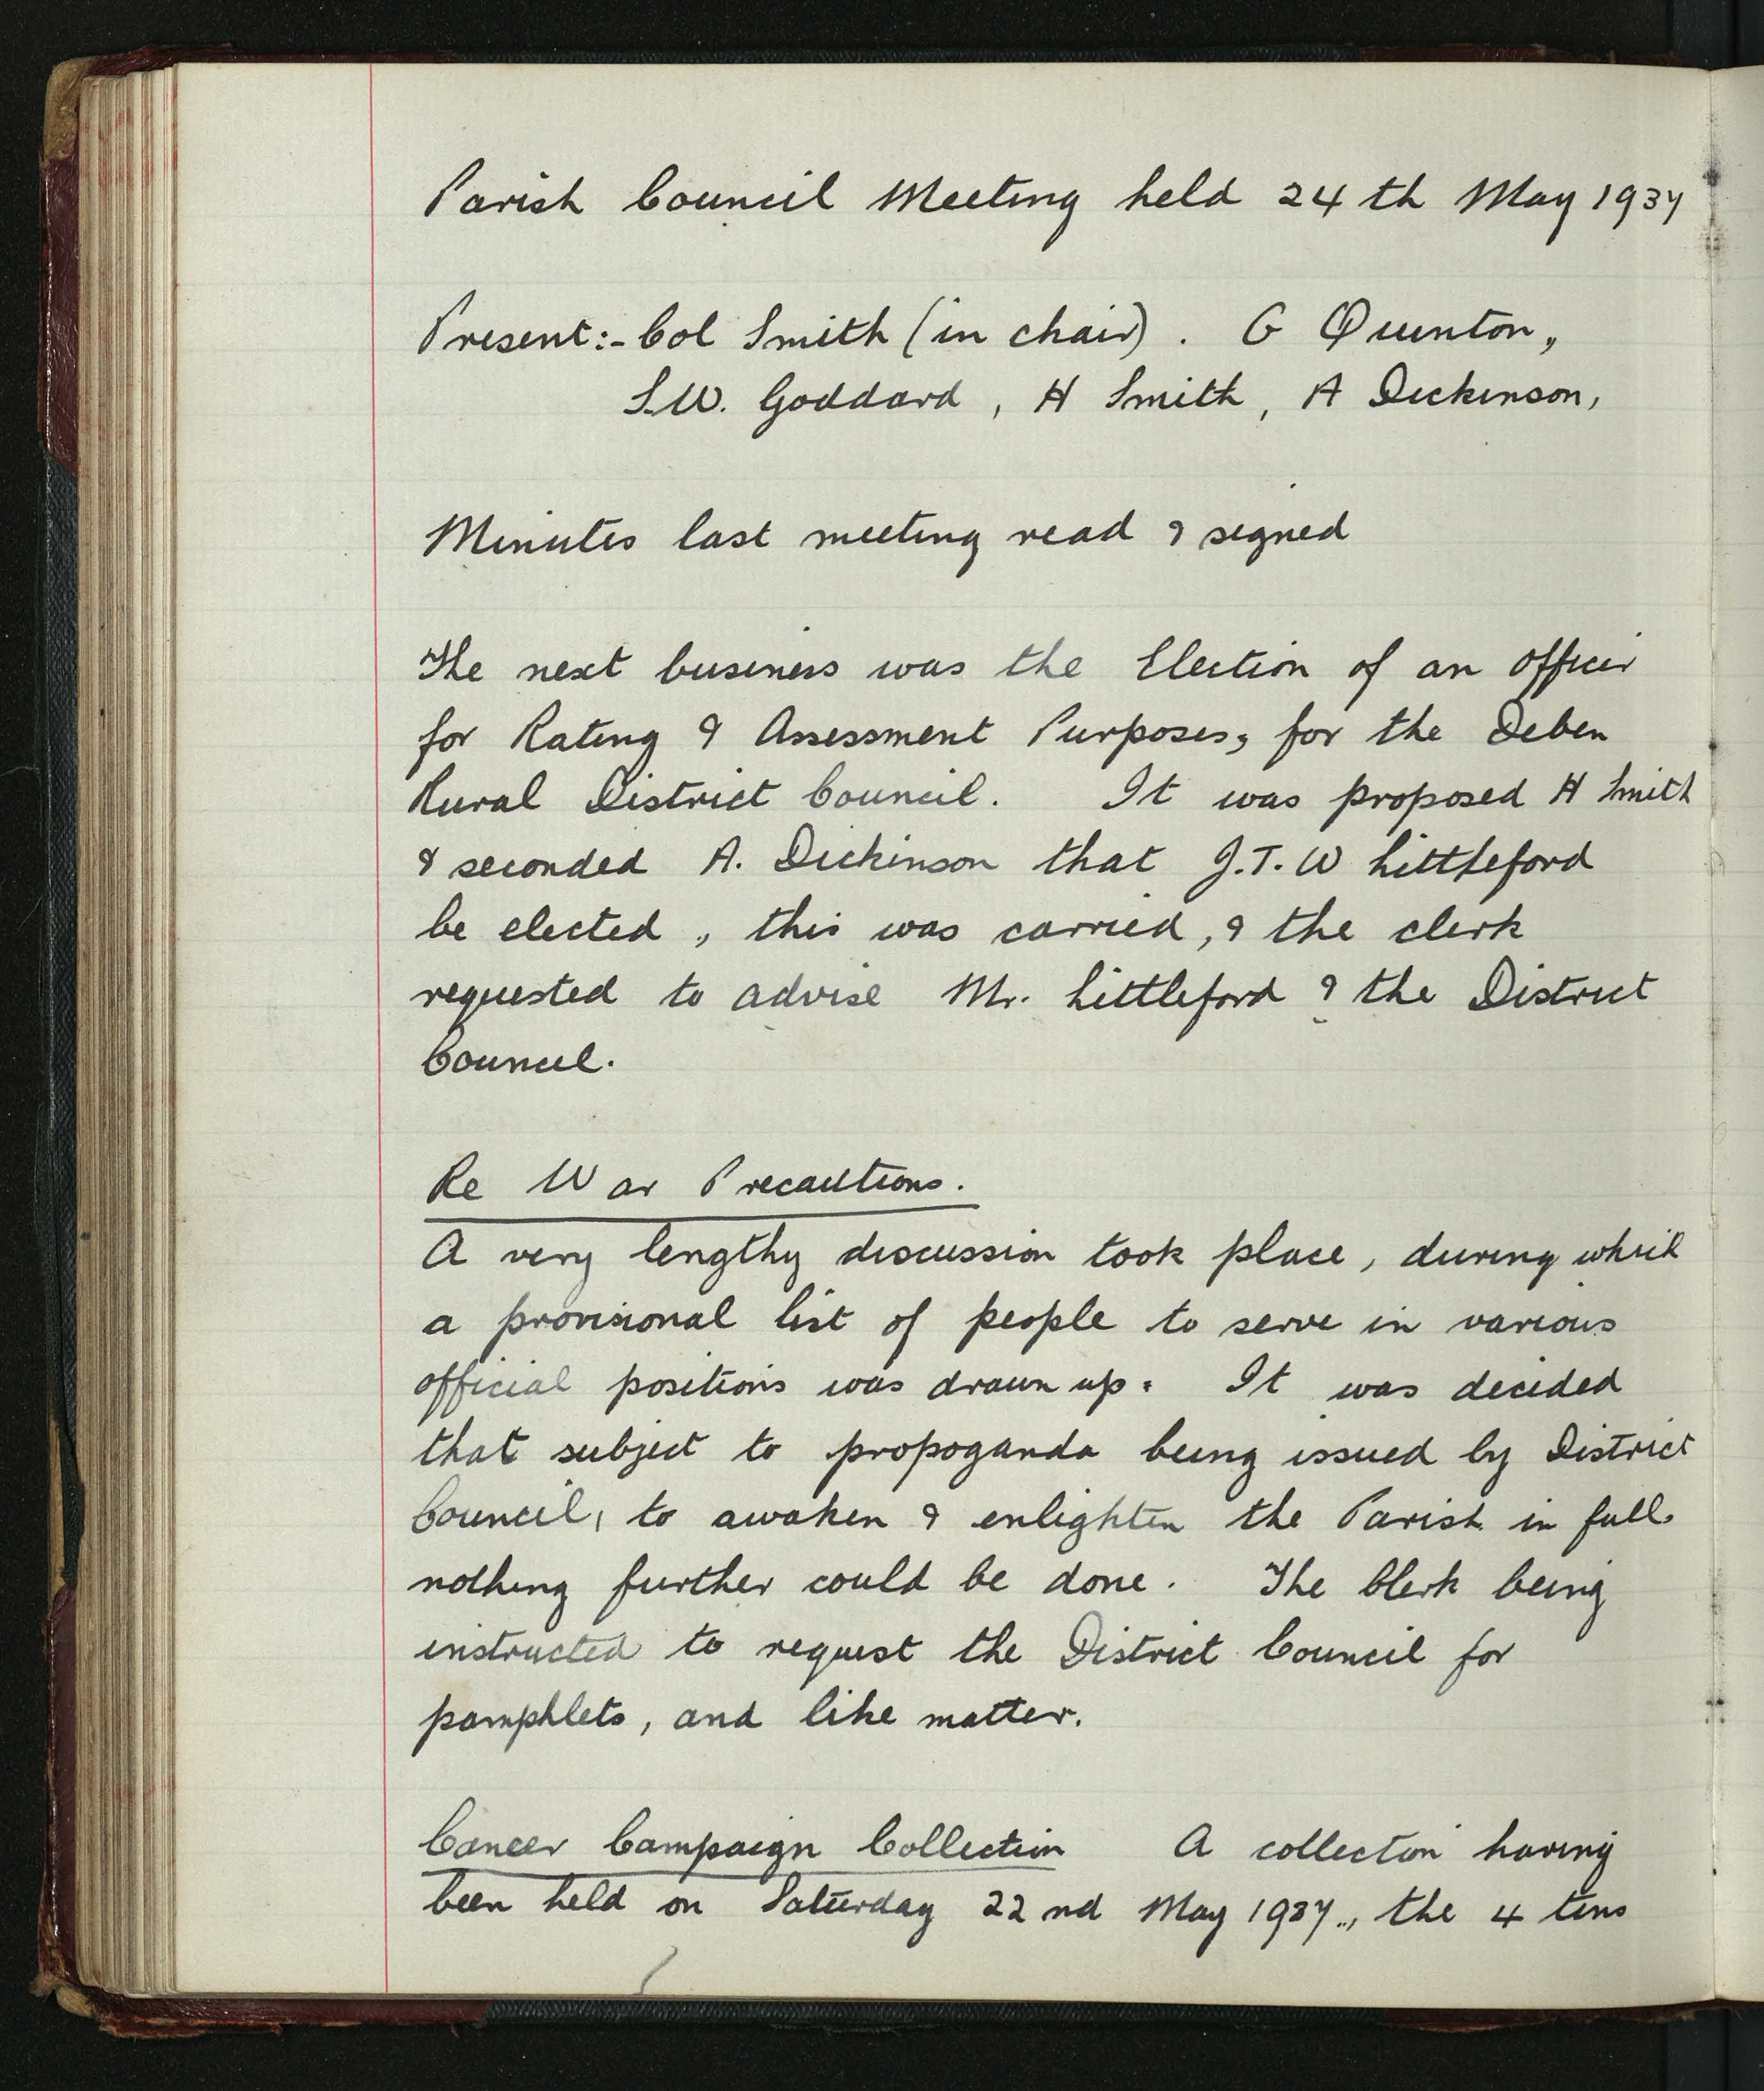 Parish Council Meeting held 24th May 1937
Present:- Col Smith (in chair). G Quinton,
S.W. Goddard, H Smith, A Dickinson,
Minutes last meeting read & signed
The next business was the Election of an officer
for Rating & Assessment Purposes, for the Deben
Rural District Council. It was proposed H Smith
& seconded A. Dickinson that J.T.W Littleford
be elected, this was carried, & the clerk
requested to advise Mr. Littleford & the District
Council.
Re War Precautions.
A very lengthy discussion took place, during which
a provisional list of people to serve in various
official positions was drawn up. It was decided
that subject to propoganda being issued by District
Council, to awaken & enlighten the Parish in full
nothing further could be done. The Clerk being
instructed to request the District Council for
pamphlets, and like matter.
Cancer Campaign Collection A collection having
been held on Saturday 22nd May 1937., the 4 tins